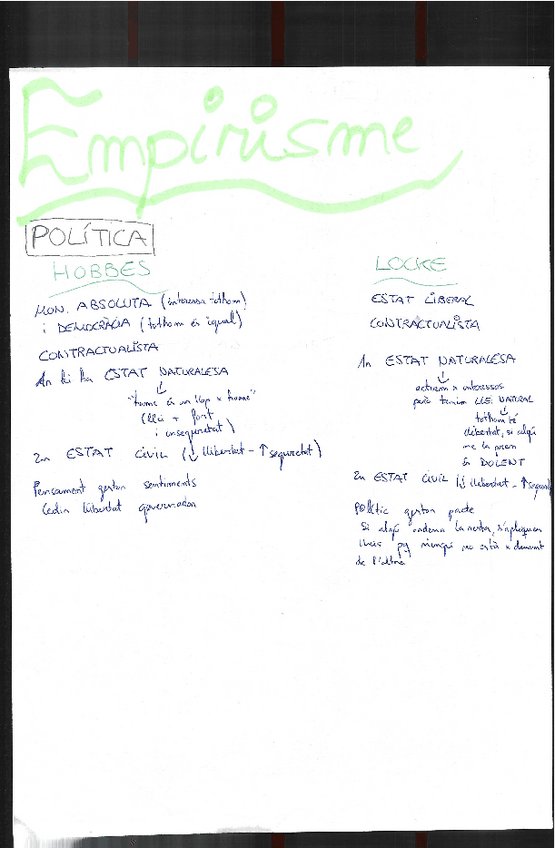 Empirisme
POLÍTICA
HOBBES
MON. ABSOLUTA (interessa tothom)
i DEMOCRÀCIA (tothom és igual)
CONTRACTUALISTA
1r hi ha ESTAT NATURALESA
↓
"home és un llop x home"
(llei + fort
i inseguretat)
2n ESTAT CIVIL (↓ llibertat - ↑ seguretat)
Pensament geston sentiments
Cedim llibertat governador
LOCKE
ESTAT LIBERAL
CONTRACTUALISTA
1r ESTAT NATURALESA
↓
actuem x interessos
però tenim LLEI NATURAL
↓
tothom té
llibertat, si algú
me la pren
és DOLENT
2n ESTAT CIVIL (↓ llibertat - ↑ segure
Polític geston pacte
Si algú la nostra, s'apliquen
lleis pq ningú no està x damunt
de l'altre